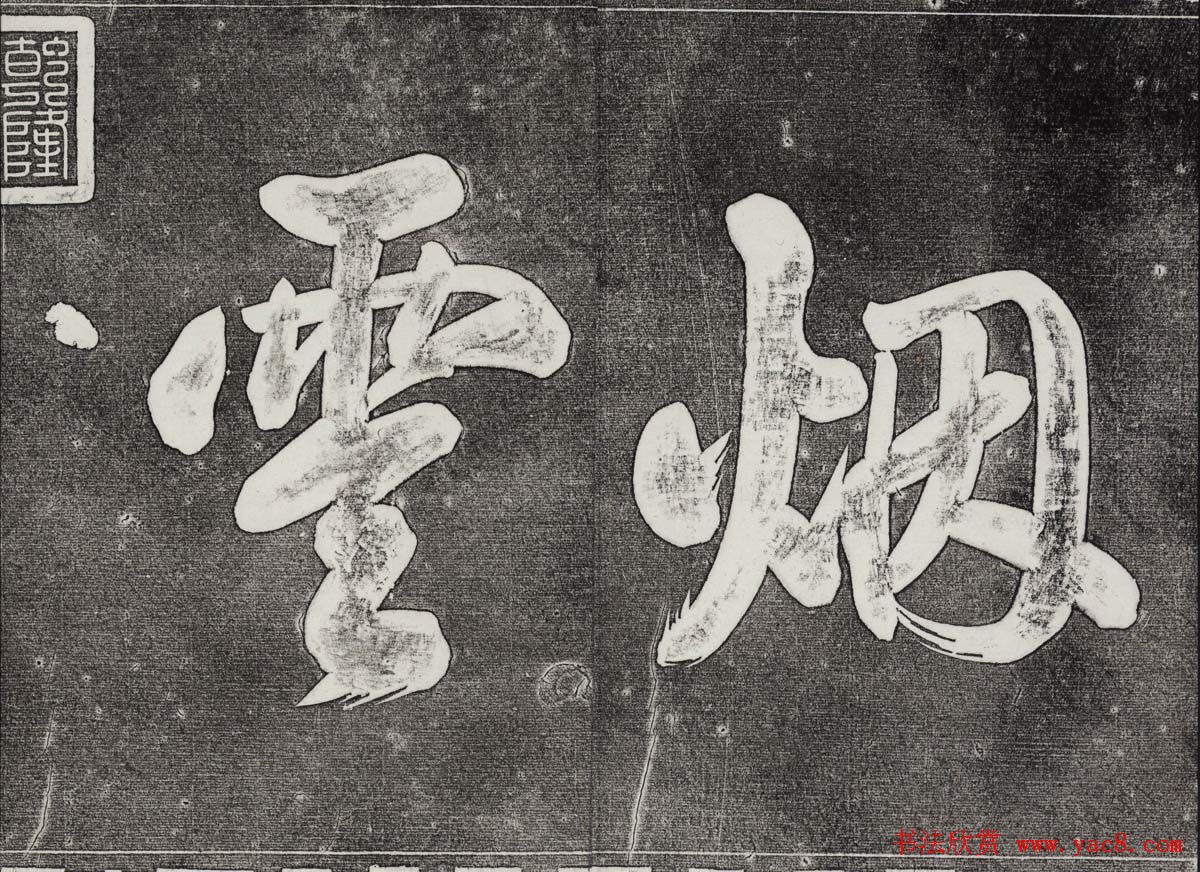 烟雲
书法欣赏 www.yac8.com